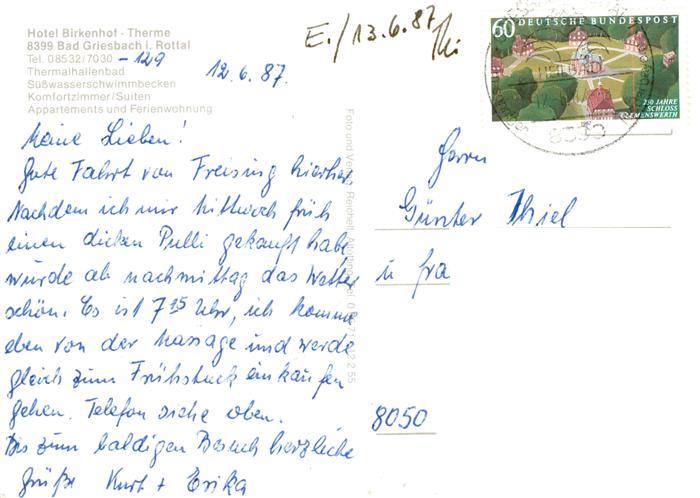 Hotel Birkenhof - Therme
8399 Bad Griesbach i. Rottal
Tel. 08532/7030 -129
Thermalhallenbad
Süßwasserschwimmbecken
Komfortzimmer/Suiten
Appartements und Ferienwohnung
12.6.87.
E./13.6.87
60 DEUTSCHE BUNDESPOST
250 JAHRE
SCHLOSS
CLEMENSWERTH
Meine Lieben!
Gute Fahrt von Freising hierher.
Nachdem ich mir Mittwoch früh
einen dicken Pulli gekauft habe,
wurde ab nachmittag das Wetter
schön. Es ist 7 15 Uhr, ich komme
eben von der Massage und werde
gleich zum Frühstück einkaufen
gehen. Telefon siehe oben.
Bis zum baldigen Besuch herzliche
Grüße Kurt + Erika
Foto und
Herrn
Günter Thiel
u fra
8050